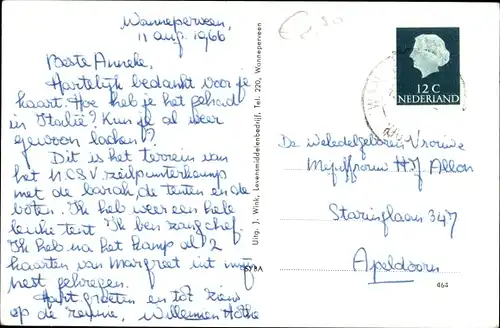 Wanneperveen,
11 aug. 1966
Beste Anneke,
Hartelijk bedankt voor je
kaart. Hoe heb je het gehad
in Italië? Kun je al weer
gewoon lachen?
Dit is het terrein van
het N.C.S.V. zeilpunterkamp
met de barak, de tenten en de
boten. Ik heb weer een hele
leuke tent. Ik ben zangchef.
Ik heb na het kamp al 2
kaarten van Margreet uit mijn
nest gekregen.
Hart. groeten en tot ziens
op de reünie, Willemien
Uitg. J. Wink, Levensmiddelenbedrijf, Tel. 220, Wanneperveen
12 C
NEDERLAND
De Weledelgeboren Vrouwe
Mejuffrouw HJ
Staringlaan 347
Apeldoorn
464